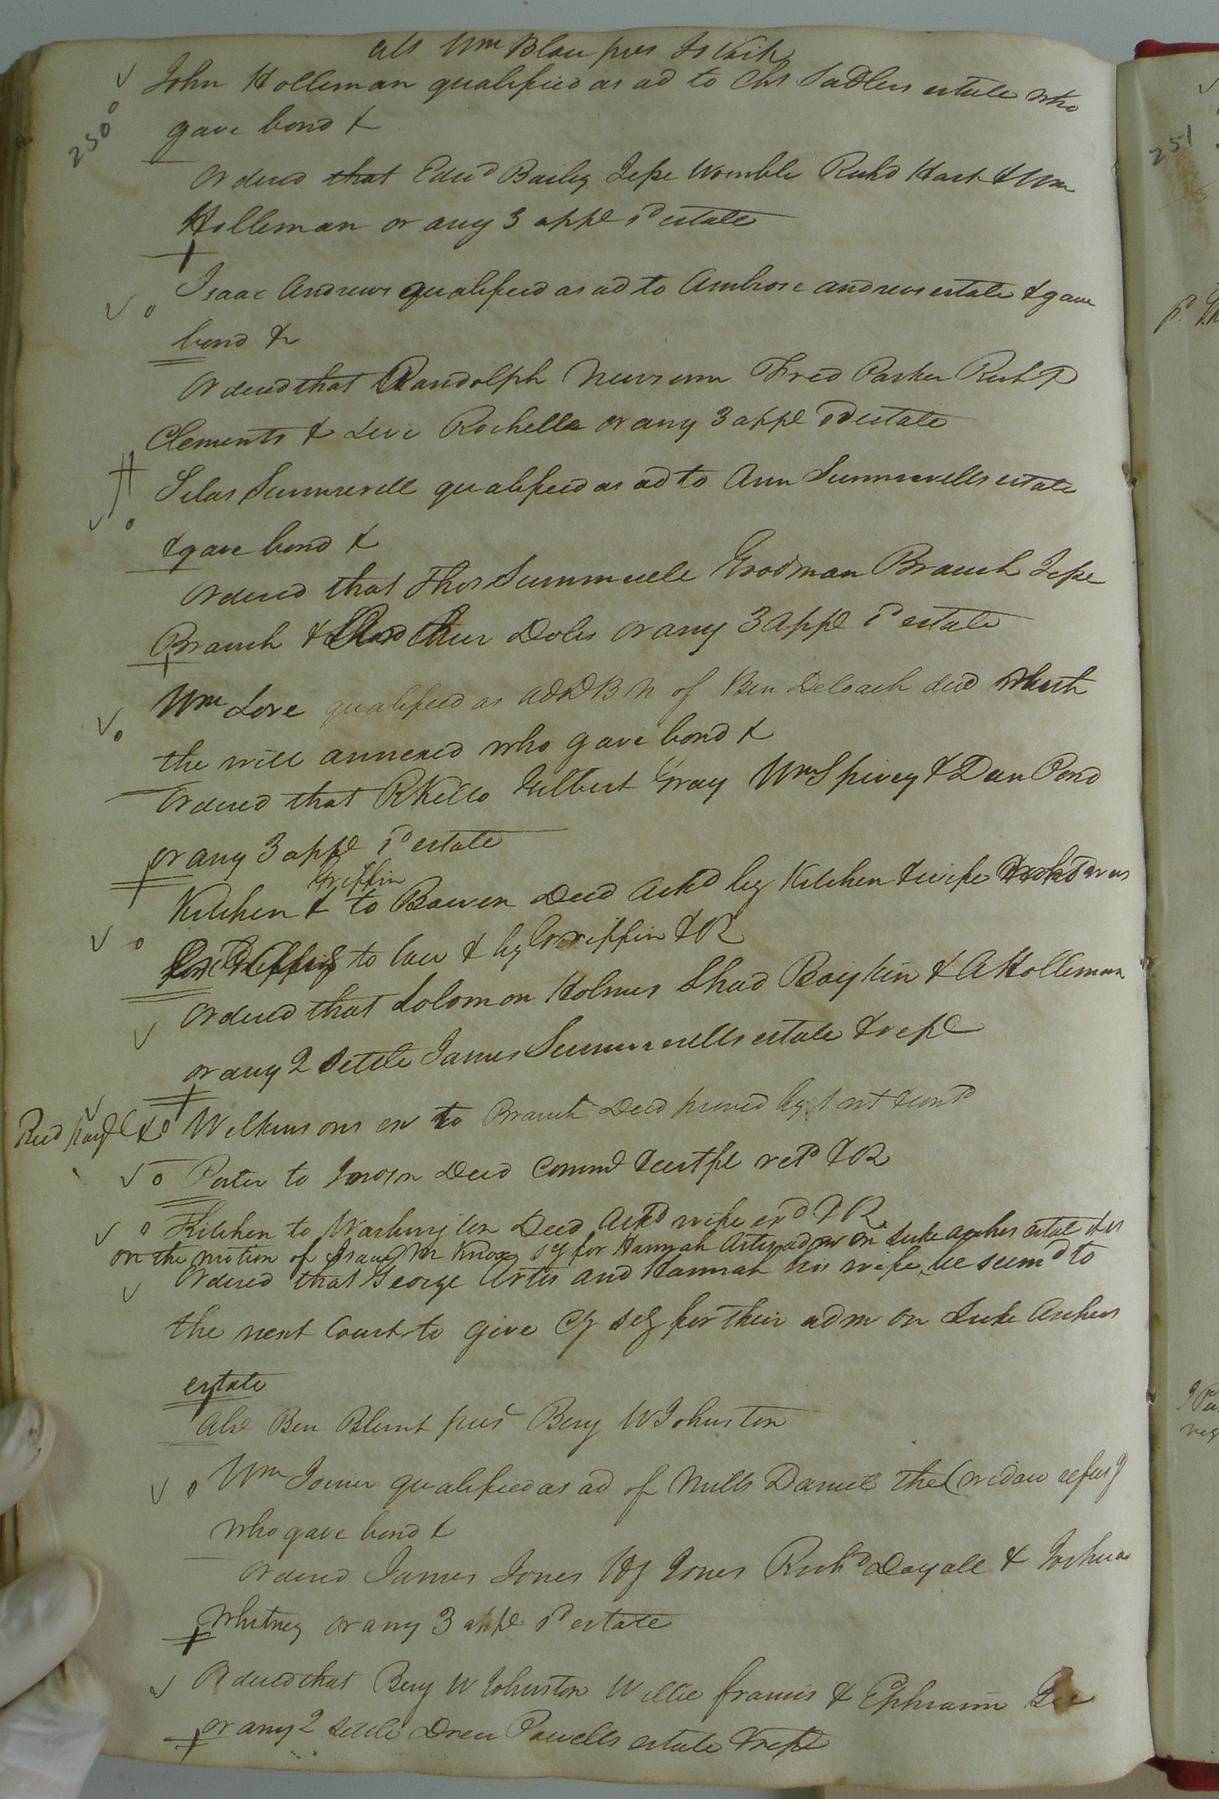 abs Wm Blow pres Js Kitch
250
John Holleman qualified as ad to Chs Sadlers estate who
gave bond &
Ordered that Edwd Bailey Jesse Womble Richd Hart & Wm
Holleman or any 3 appr sd estate
Isaac Andrews qualified as ad to Ambrose andrews estate & gave
bond &c
Ordered that Randolph Newsum Fred Parker Richd
Clements & Levi Rochelle or any 3 appr sd estate
Silas Summerell qualified as ad to Ann Summerells estate
& gave bond &
Ordered that Thos Summerell Goodman Branch Jesse
Branch & Doles or any 3 appr sd estate
Wm Love qualified as ad D B N of Ben Deloach decd with
the will annexed who gave bond &
Ordered that R Kello Gilbert Gray Wm Spivey & Dan Pond
or any 3 appr sd estate
Griffin
Kitchen & to Bowen Deed ackd by Kitchen & wife
to law & by Griffin & OR
Ordered that Solomon Holmes Shad Boykin & A Holleman
or any 2 settle James Summerells estate & repe
Wilkinsons ex to Branch Deed proved by 1 wit & contd
Porter to Deed Commd & certfe retd & OR
Kitchen to Washington Deed Ackd wife exd & OR
on the motion of Knox sey for Hannah Artis adm on Luke archers estate it is
Ordered that George Artis and Hannah his wife be summd to
the next Court to give sey for their adm on Luke Archers
estate
Abs Ben Blunt pres Benj W Johnston
Wm Joiner qualified as ad of Mills Daniel the (widow refusg
who gave bond &
Ordered James Jones Jones Richd Dayall & Joshua
Whitney or any 3 appr sd estate
Ordered that Benj W Johnston Willie francis & Ephraim Gee
or any 2 settle Drew Powells estate & repe
251